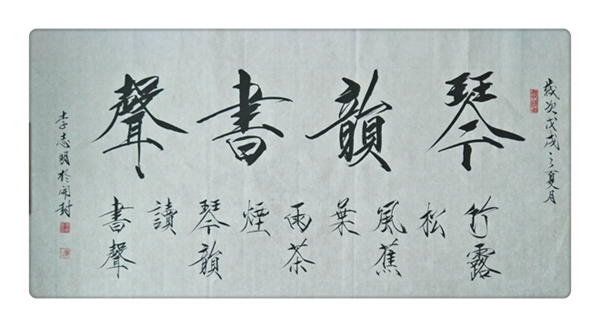 歲次戊戌之夏月
琴韻書聲
竹露
松
風蕉
葉
雨茶
煙
琴韻
讀
書聲
李志明於開封